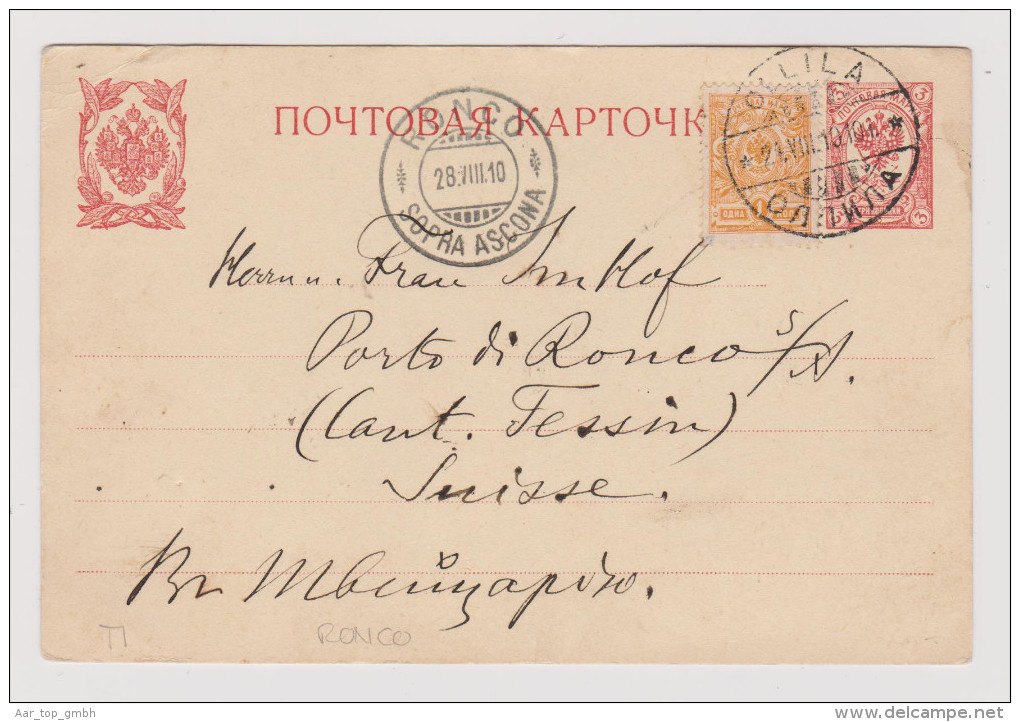 ПОЧТОВАЯ КАРТОЧК
RONCO
28.VIII.10
SOPRA ASCONA
LLILA
ОЛЛИЛА
ОДНА 1
3
3
Herrn u. Frau ImHof
Porto di Ronco s/A.
(Cant. Tessin)
Suisse.
Въ Швейцарію.
TI
RONCO
Aar_top_gmbh
delcampe.net